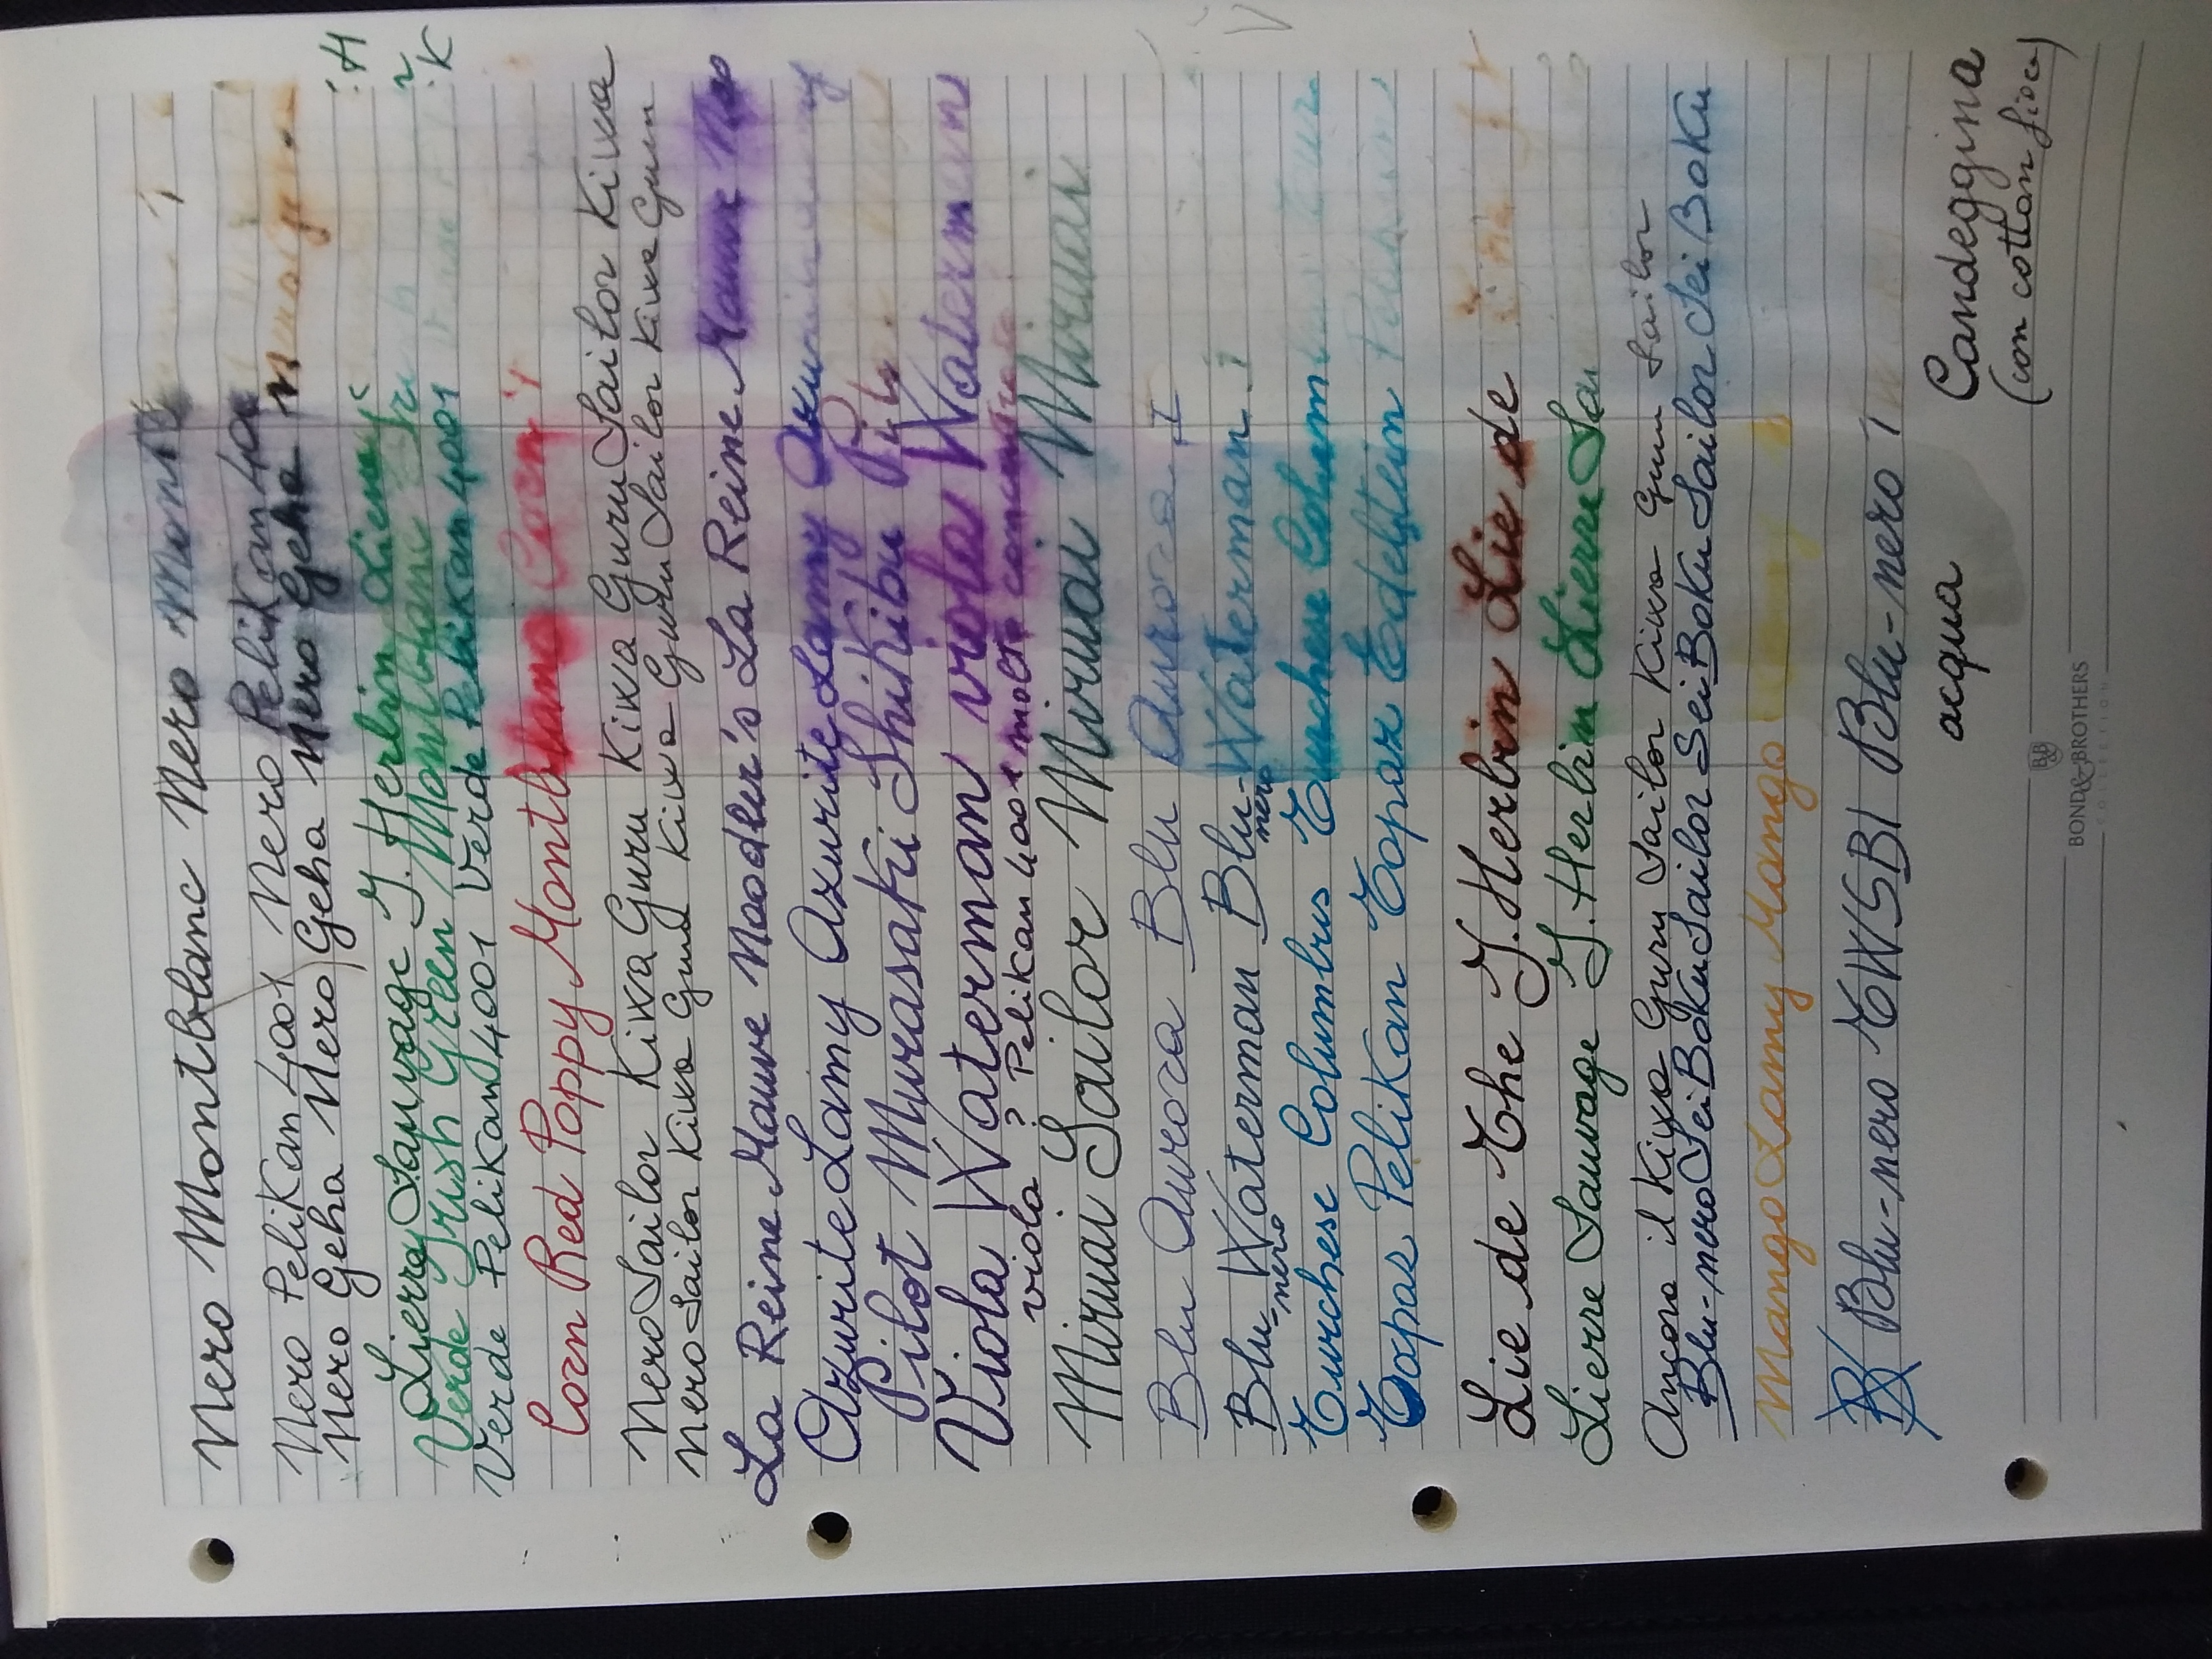 Nero Montblanc Nero Montblanc Nero Mont
Nero Pelikan 4001 Nero Pelikan 400
Nero Geha Nero Geha Nero Geha N
Lierre Sauvage J. Herbin Lierre
Verde Irish Green Montblanc Iri
Verde Pelikan 4001 Verde Pelikan 4001
Corn Red Poppy Montblanc Corn
Nero Sailor Kiwa Guru Kiwa Guru Sailor Kiwa
Nero Sailor Kiwa Gunu Kiwa Gunu Sailor Kiwa Gunu
La Reine Mauve Noodler's La Reine Mauve Noo
Azurite Lamy Azurite Lamy Azu
Pilot Murasaki Shikibu Pilo
Viola Waterman viola Waterman
viola ? Pelikan 4001 molto concentrato
Miruai Sailor Miruai Miruai
Blu Aurora Blu Aurora
Blu-nero Waterman Blu-nero Waterman
Turchese Columbus Turchese Columbus
Topas Pelikan Topaz Edelstein
Lie de The J. Herbin Lie de
Lierre Sauvage J. Herbin Lierre Sau
Ancora il Kiwa Guru Sailor Kiwa Gunu Sailor
Blu-nero Sei Boku Sailor Sei Boku Sailor Sei Boku
Mango Lamy Mango
B Blu-nero TWSBI Blu-nero T
acqua Candeggina
(con cotton fioc)
BOND&BROTHERS
COLLECTION